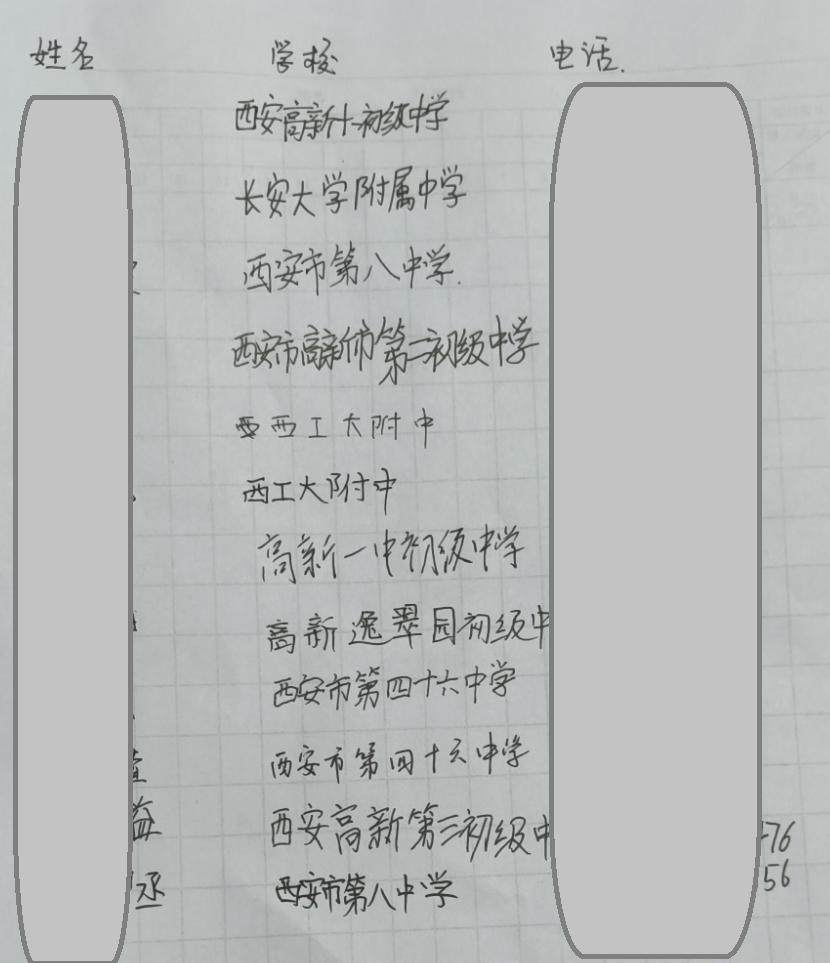 姓名 学校 电话.
西安高新十一初级中学
长安大学附属中学
西安市第八中学.
西安市高新市第二初级中学
西工大附中
西工大附中
高新一中初级中学
高新逸翠园初级中
西安市第四十六中学
西安市第四十六中学
益 西安高新第三初级中 76
丞 西安市第八中学 56